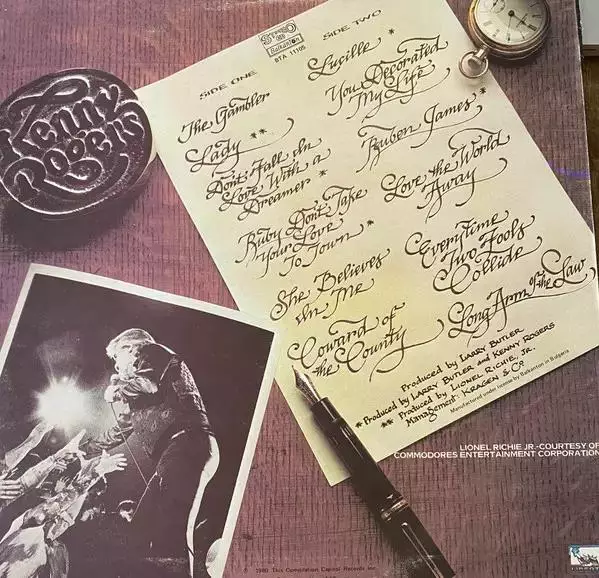 Kenny
Rogers
Balkanton
BTA 11105
SIDE ONE
The Gambler
Lady **
Don't Fall In
Love With a
Dreamer *
Ruby Don't Take
Your Love
To Town *
She Believes
In Me
Coward of
the County
SIDE TWO
Lucille *
You Decorated
My Life
Ruben James *
Love the World
Away
Everytime
Two Fools
Collide
Long Arm of the Law
Produced by LARRY BUTLER
* Produced by LARRY BUTLER and KENNY ROGERS
** Produced by LIONEL RICHIE, JR.
Management: KRAGEN & CO.
Manufactured under license by Balkanton in Bulgaria
LIONEL RICHIE JR.-COURTESY OF
COMMODORES ENTERTAINMENT CORPORATION
℗ 1980 This Compilation Capitol Records Inc.
LIBERTY